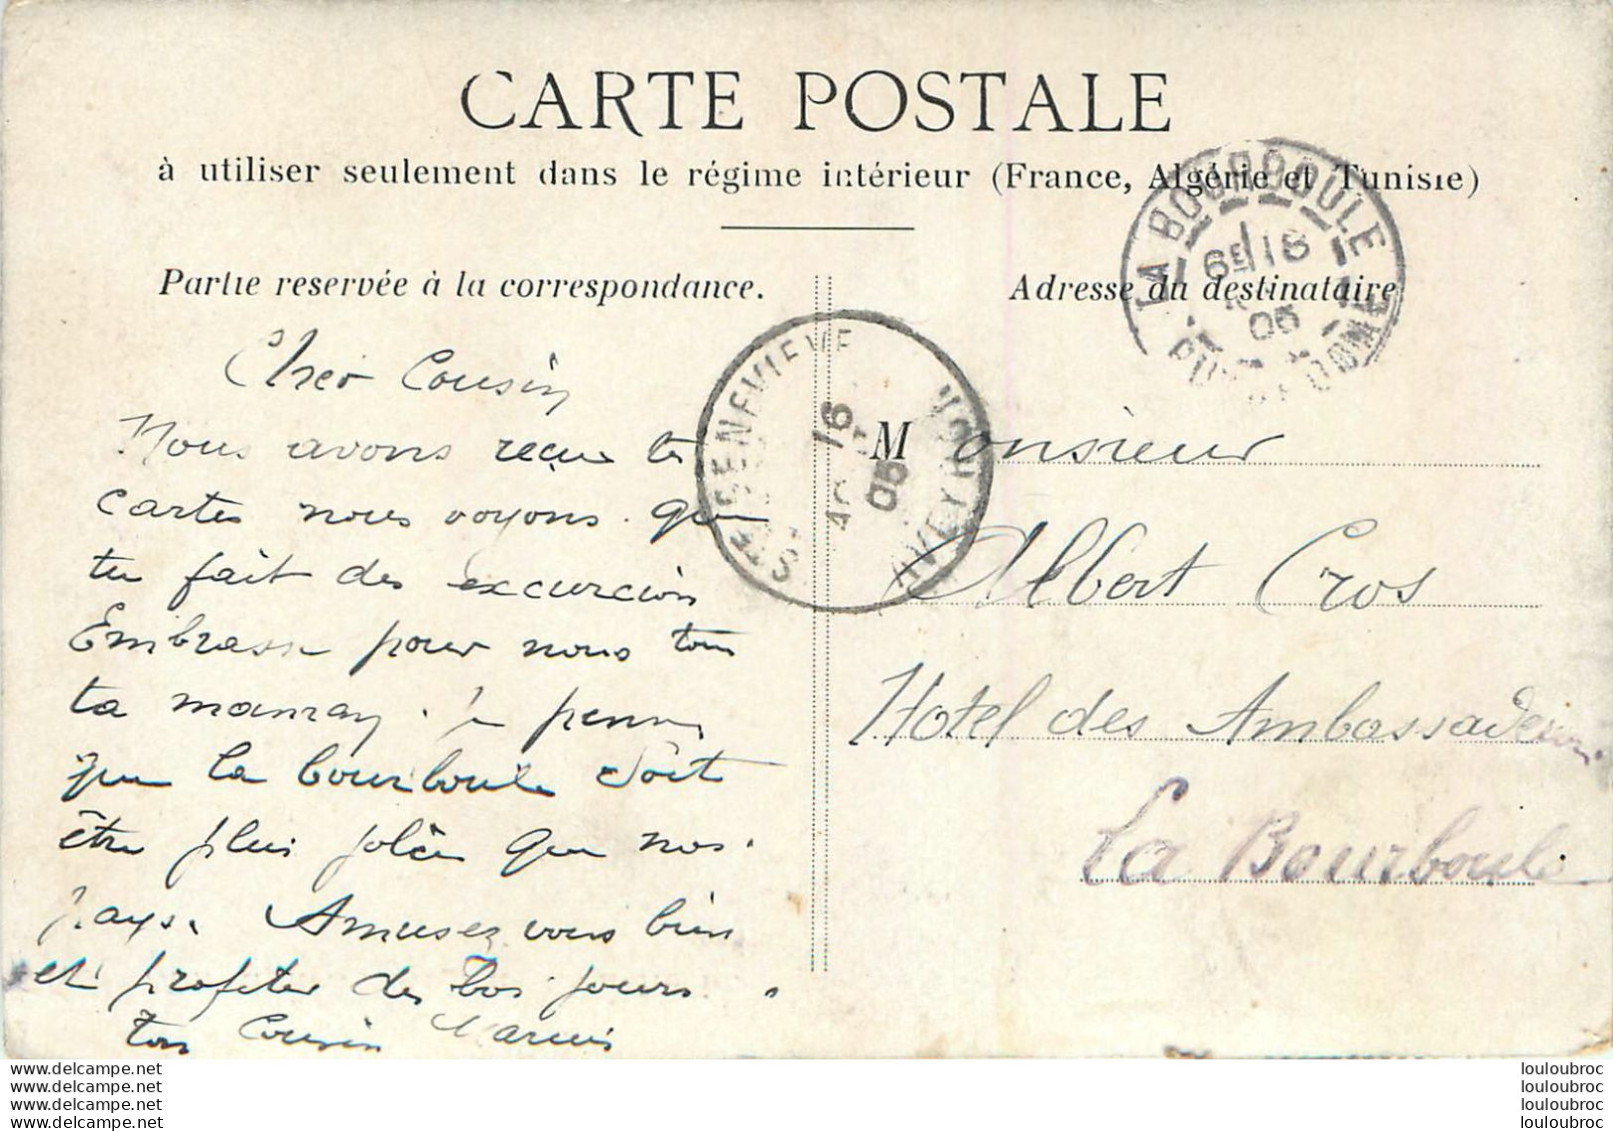 CARTE POSTALE
à utiliser seulement dans le régime intérieur (France, Algérie et Tunisie)
Partie reservée à la correspondance.
Adresse du destinataire
LA BOURBOULE
18
05
PUY DE DOME
STE GENEVIEVE
16
05
AVEYRON
Cher Cousin
Nous avons reçue tes
cartes nous voyons que
tu fait des excurcions
Embrasse pour nous tous
ta maman. je pense
que la bourboule doit
être plus jolie que nos
pays. Amusez vous bien
et profiter des bos jours.
ton Cousin
Monsieur
Albert Cros
Hotel des Ambassadeurs
La Bourboule
www.delcampe.net
www.delcampe.net
www.delcampe.net
www.delcampe.net
louloubroc
louloubroc
louloubroc
louloubroc